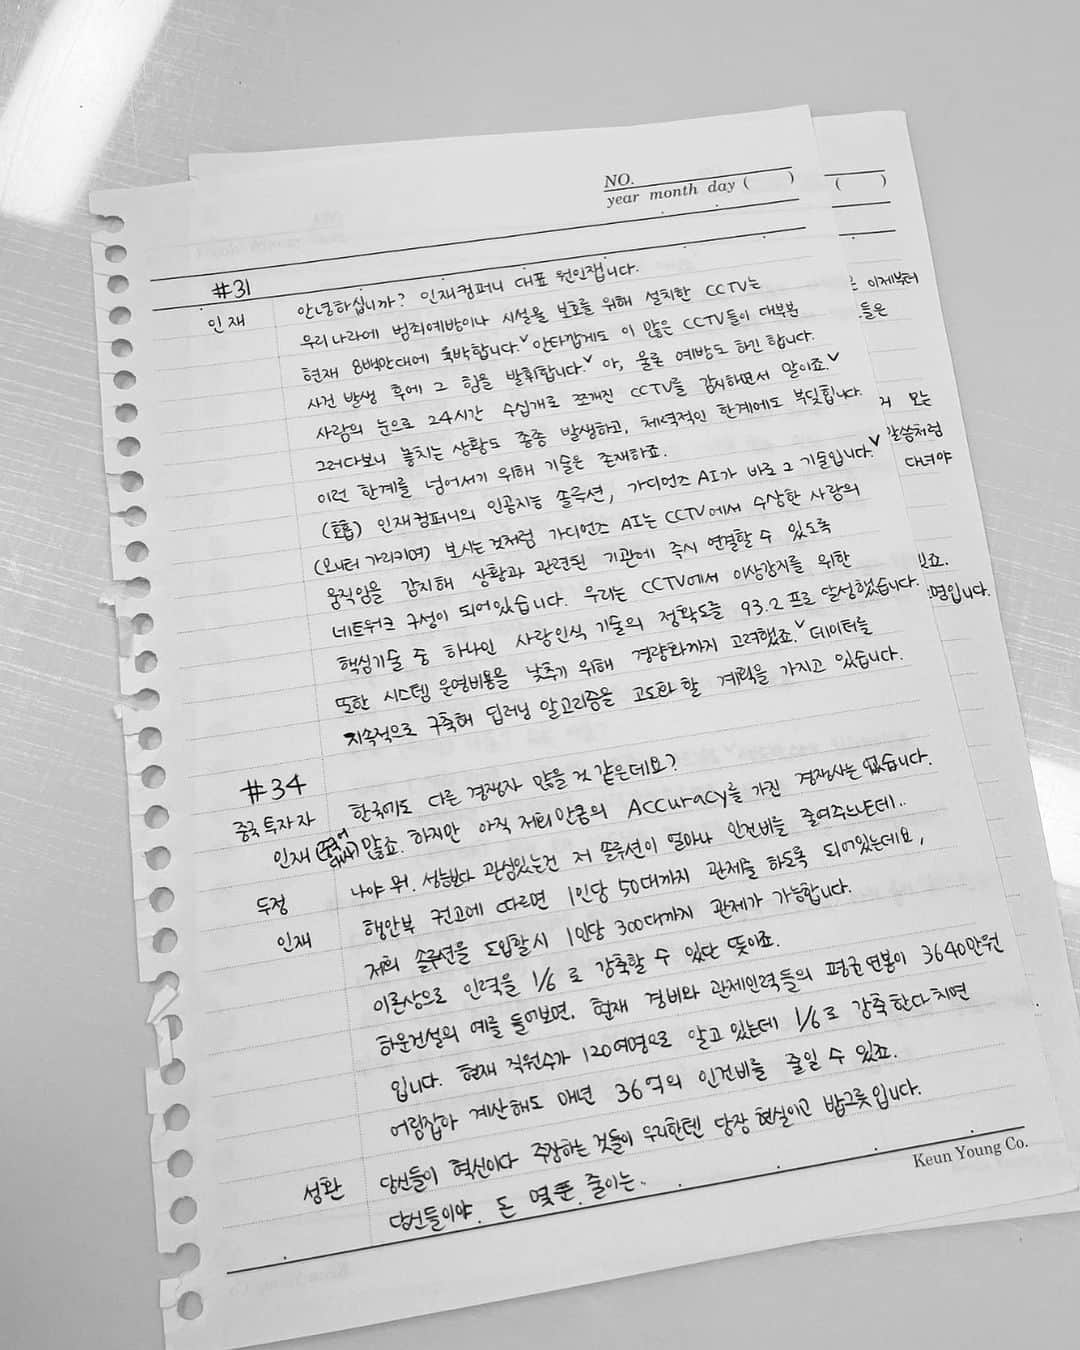 NO.
year month day ( )
( )
#31
인재 안녕하십니까? 인재컴퍼니 대표 원인잽니다.
우리나라에 범죄예방이나 시설물 보호를 위해 설치한 CCTV는
현재 8백만대에 육박합니다. 안타깝게도 이 많은 CCTV들이 대부분
사건 발생 후에 그 힘을 발휘합니다. 아, 물론 예방도 하긴 합니다.
사람의 눈으로 24시간 수십개로 쪼개진 CCTV를 감시하면서 말이죠.
그러다보니 놓치는 상황도 종종 발생하고, 체력적인 한계에도 부딪힙니다.
이런 한계를 넘어서기 위해 기술은 존재하죠.
(호흡) 인재컴퍼니의 인공지능 솔루션, 가디언즈 AI가 바로 그 기술입니다.
(모니터 가리키며) 보시는것처럼 가디언즈 AI는 CCTV에서 수상한 사람의
움직임을 감지해 상황과 관련된 기관에 즉시 연결할 수 있도록
네트워크 구성이 되어있습니다. 우리는 CCTV에서 이상감지를 위한
핵심기술 중 하나인 사람인식 기술의 정확도를 93.2 프로 달성했습니다.
또한 시스템 운영비용을 낮추기 위해 경량화까지 고려했죠. 데이터를
지속적으로 구축해 딥러닝 알고리즘을 고도화 할 계획을 가지고 있습니다.
#34
중국 투자자 한국에도 다른 경쟁자 많을 것 같은데요?
인재 많죠. 하지만 아직 저희만큼의 Accuracy를 가진 경쟁사는 없습니다.
두정 나야 뭐. 성능보다 관심있는건 저 솔루션이 얼마나 인건비를 줄여주느냔데..
인재 행안부 권고에 따르면 1인당 50대까지 관제를 하도록 되어있는데요,
저희 솔루션을 도입할시 1인당 300대까지 관제가 가능합니다.
이론상으로 인력을 1/6 로 감축할 수 있단 뜻이죠.
하운건설의 예를 들어보면. 현재 경비와 관제인력들의 평균연봉이 3640만원
입니다. 현재 직원수가 120여명으로 알고 있는데 1/6로 감축한다치면
어림잡아 계산해도 매년 36억의 인건비를 줄일 수 있죠.
성환 당신들이 혁신이다 주장하는 것들이 우리한텐 당장 현실이고 밥그릇입니다.
당신들이야. 돈 몇푼 줄이는.
Keun Young Co.
이제부터
들은
모든
말씀처럼
다녀야
있죠.
명입니다.